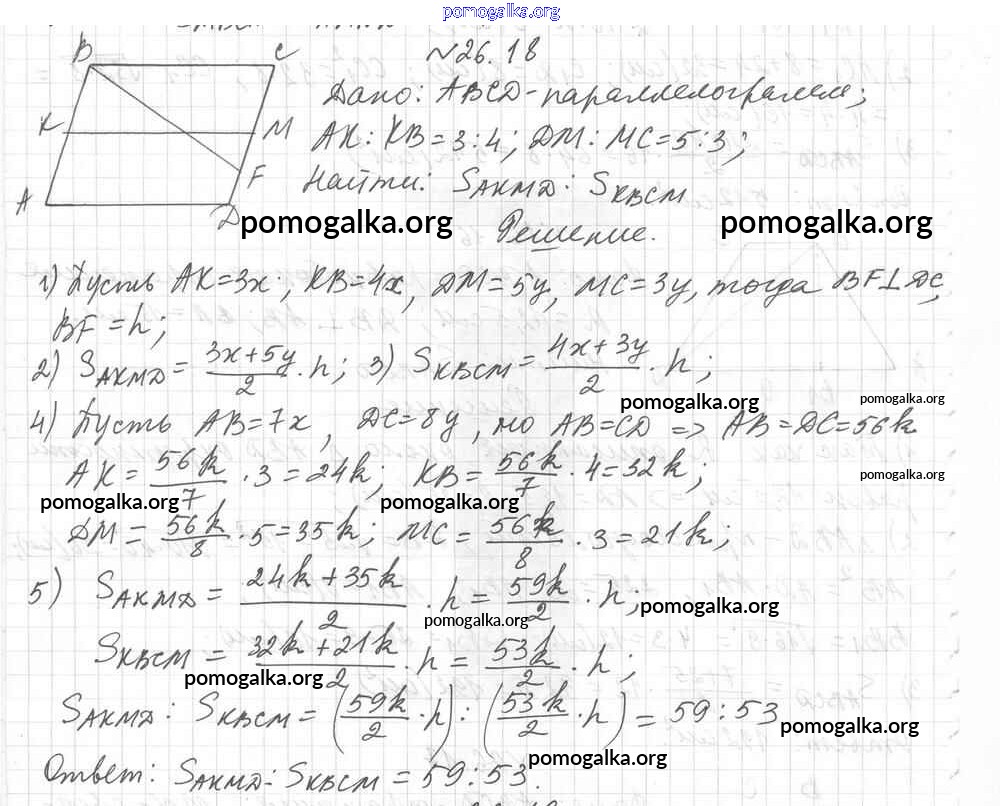 pomogalka.org
№26.18
B C
K M
F
A D
Дано: ABCD - параллелограмм;
AK : KB = 3 : 4; DM : MC = 5 : 3;
Найти: S_AKMD : S_KBCM
pomogalka.org pomogalka.org
Решение.
1) Пусть AK=3x; KB=4x, DM=5y, MC=3y, тогда BF⊥DC,
BF=h;
2) S_AKMD = (3x+5y)/2 · h; 3) S_KBCM = (4x+3y)/2 · h;
pomogalka.org pomogalka.org
4) Пусть AB=7x, DC=8y, но AB=CD => AB=DC=56k
AK = 56k/7 · 3 = 24k; KB = 56k/7 · 4 = 32k;
pomogalka.org
pomogalka.org pomogalka.org
DM = 56k/8 · 5 = 35k; MC = 56k/8 · 3 = 21k;
5) S_AKMD = (24k+35k)/2 · h = 59k/2 · h;
pomogalka.org pomogalka.org
S_KBCM = (32k+21k)/2 · h = 53k/2 · h;
pomogalka.org
S_AKMD : S_KBCM = (59k/2 · h) : (53k/2 · h) = 59 : 53
pomogalka.org
pomogalka.org
Ответ: S_AKMD : S_KBCM = 59 : 53.